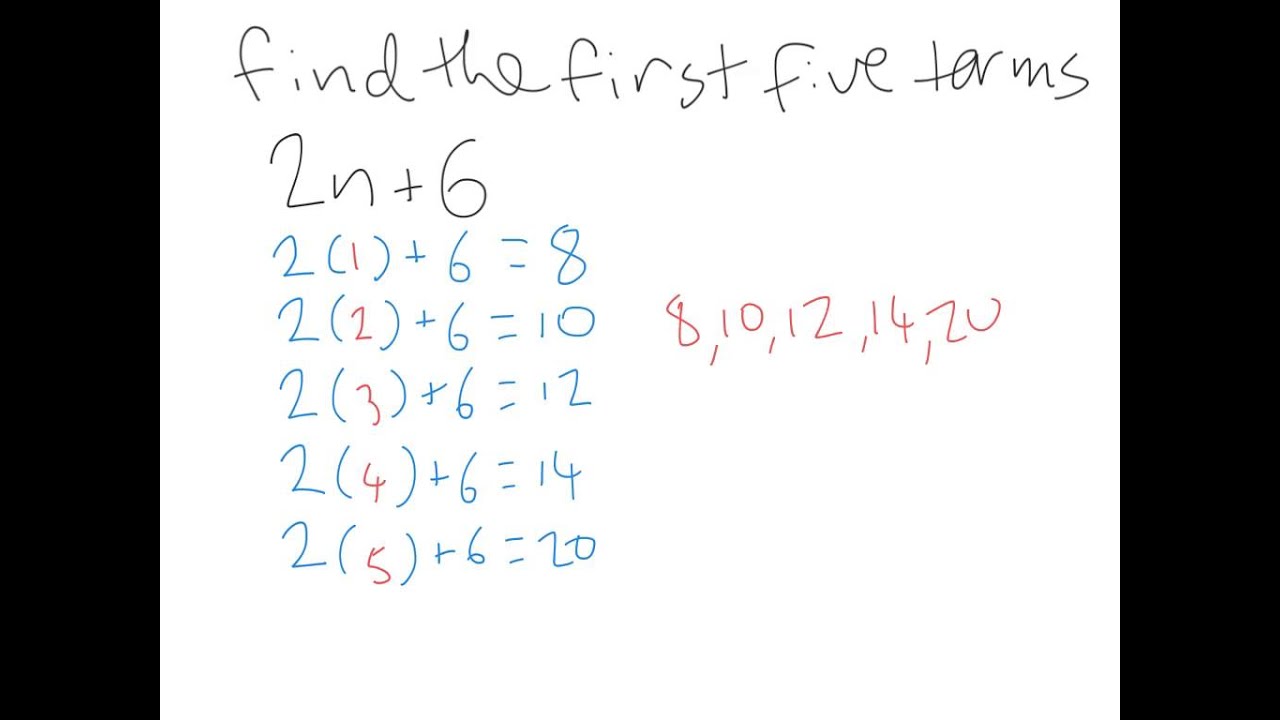 find the first five terms
2n+6
2(1)+6=8
2(2)+6=10
8,10,12,14,20
2(3)+6=12
2(4)+6=14
2(5)+6=20